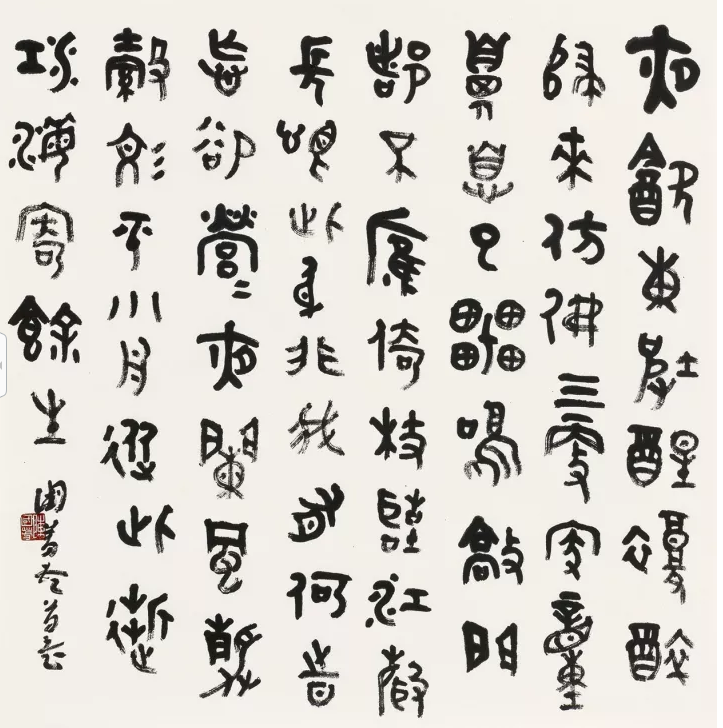 夜飲東坡醒復醉
歸來彷彿三更家童
鼻息已雷鳴敲門
都不應倚杖聽江聲
長恨此身非我有何時
忘卻營營夜闌風靜
縠紋平小舟從此逝
江海寄餘生